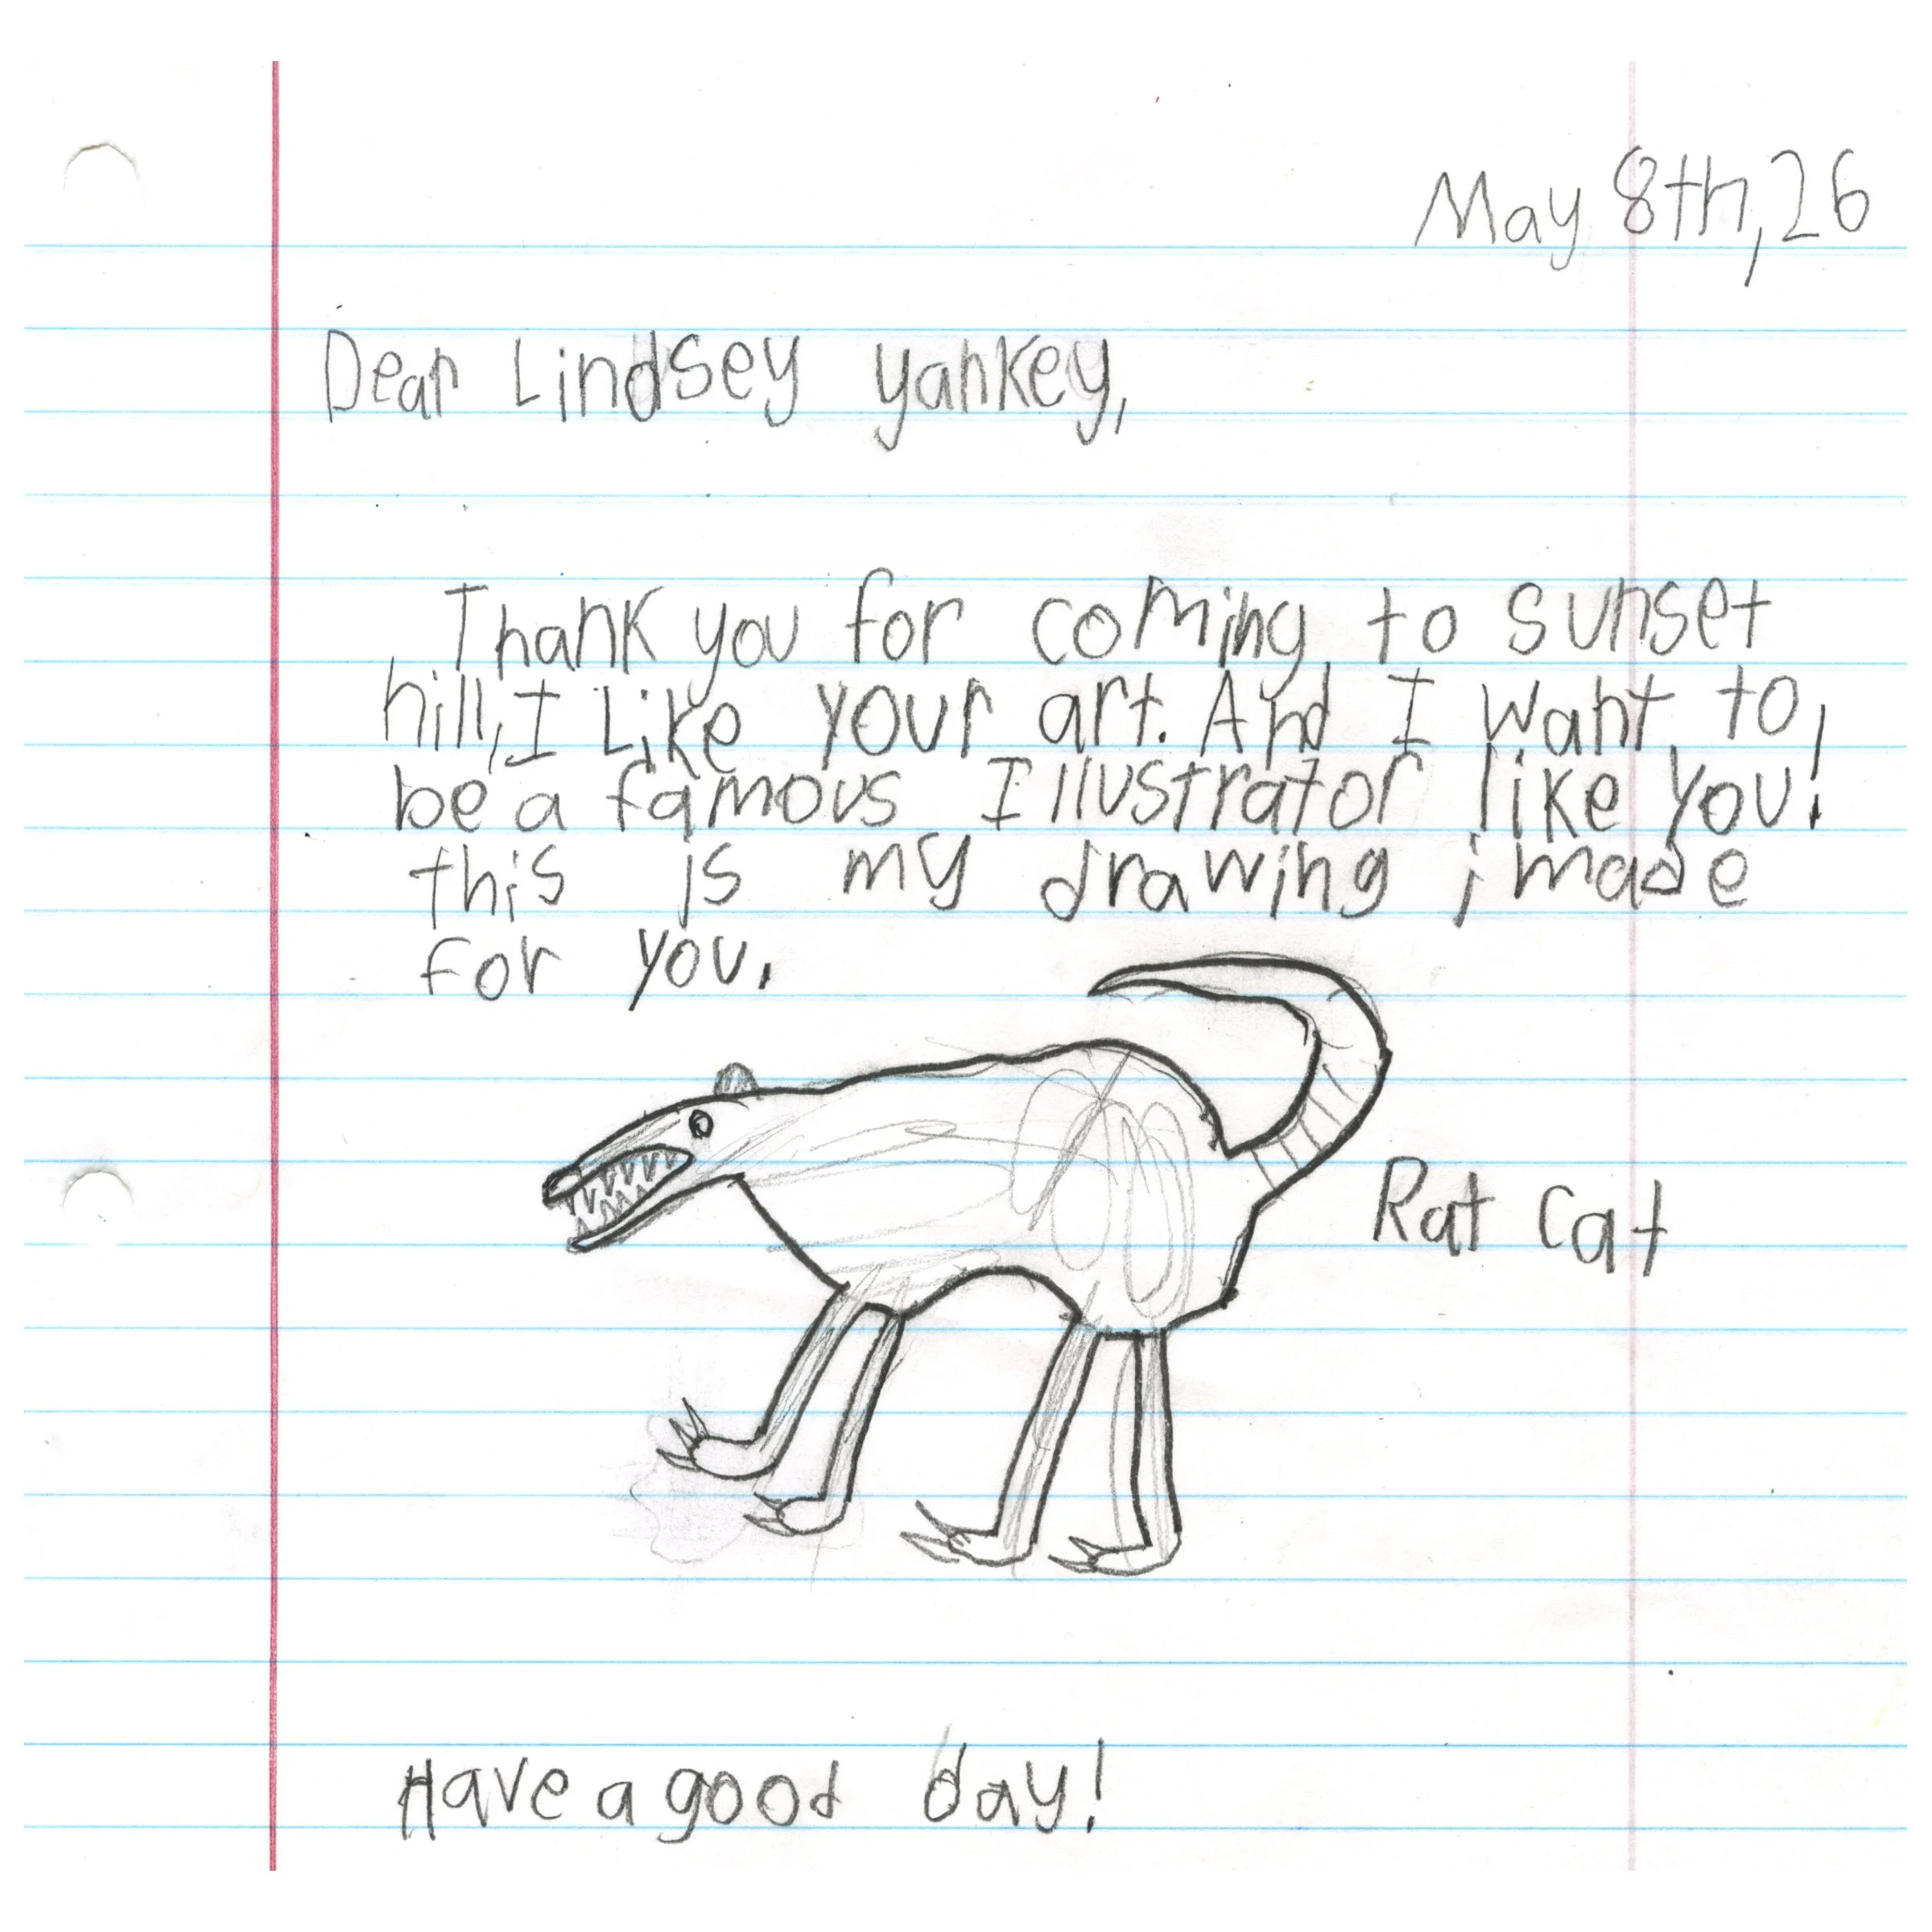 May 8th, 26
Dear Lindsey yankey,
Thank you for coming to sunset
hill, I Like your art. And I want to
be a famous Illustrator like you!
this is my drawing i made
for you.
Rat Cat
Have a good day!